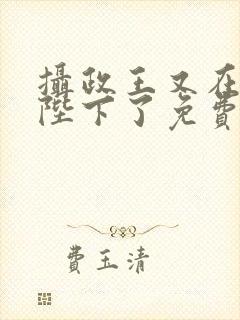 攝政王又在
陛下了免費
費玉清